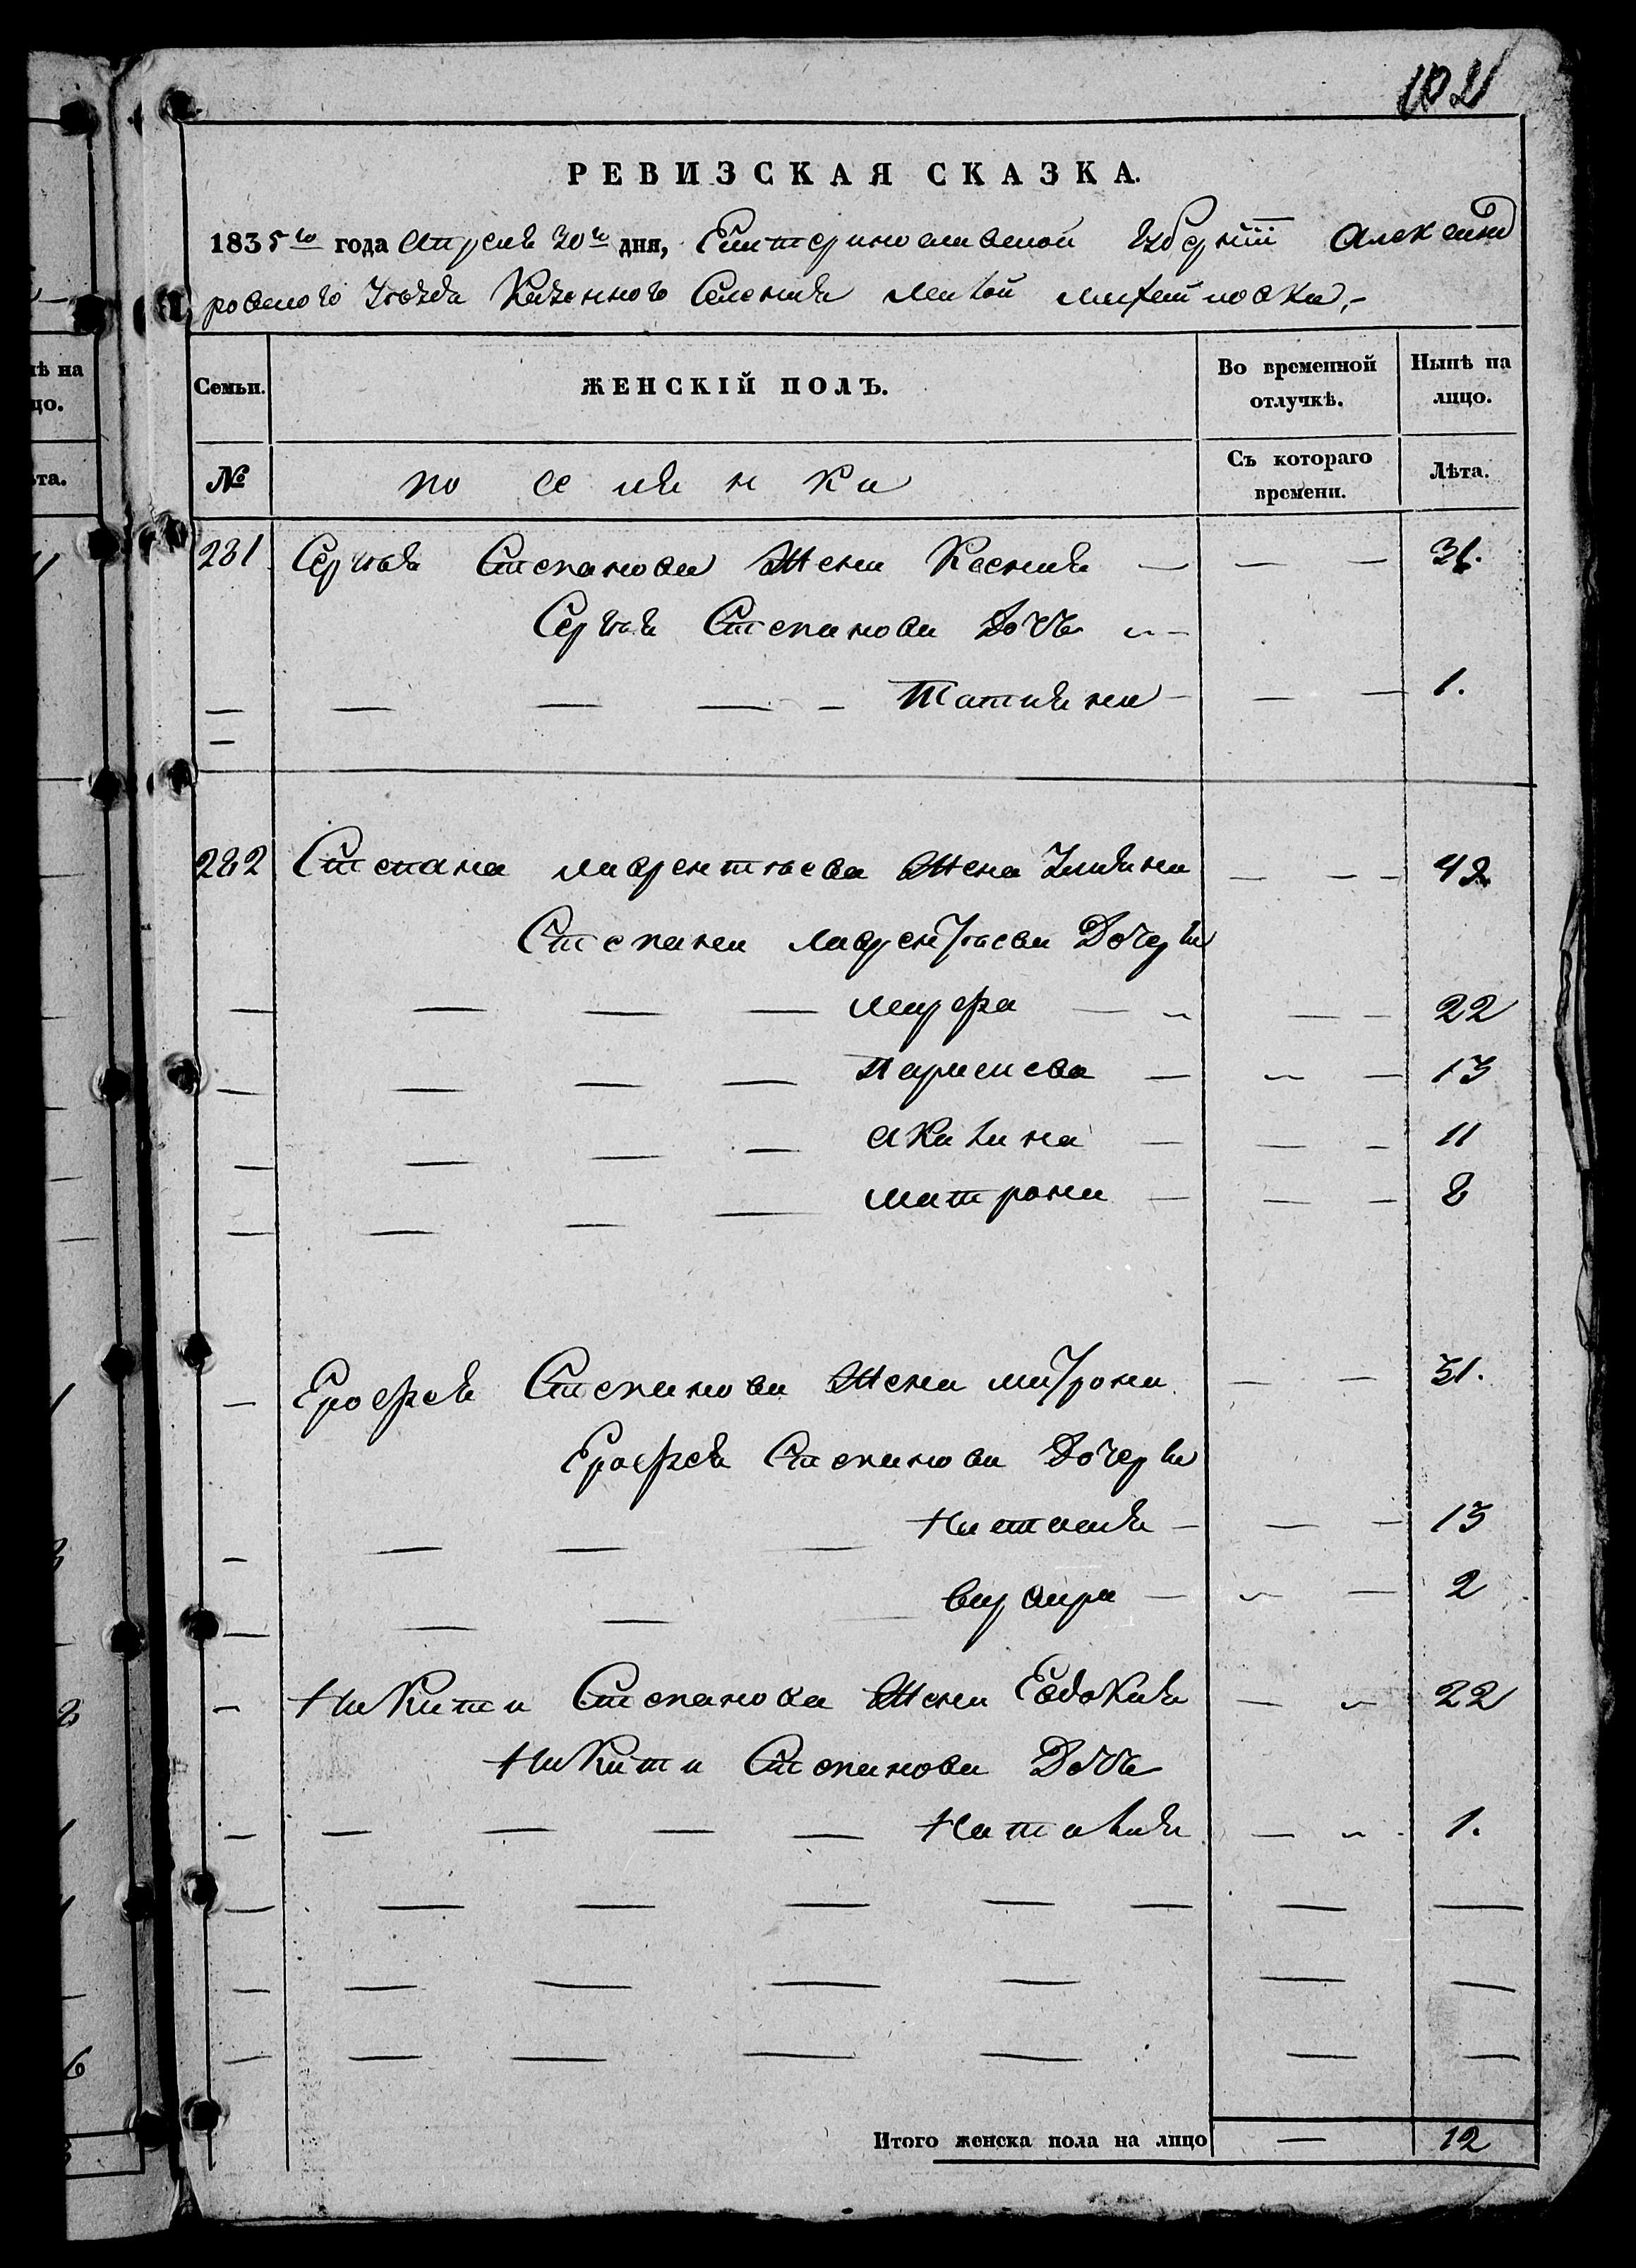 102
РЕВИЗСКАЯ СКАЗКА.
1835го года Апреля 30го дня, Екатеринославской Губернии Александ
ровского Уезда Казенного Селения Малой Михайловки,-
Семьи. ЖЕНСКІЙ ПОЛЪ. Во временной отлучкѣ. Нынѣ на лицо.
№ поселянка Съ котораго времени. Лѣта.
281 Сергѣя Степанова Жена Ксения — — — 31.
Сергѣя Степанова Дочь
Татияна — — — 1.
282 Степана Лаврентьева Жена Улияна — — — 42
Степана Лаврентьева Дочери
Марфа — — — 22
Параскева — — — 13
Акилина — — — 11
Матрона — — — 8
Ерофея Степанова Жена Матрона — — 31.
Ерофея Степанова Дочери
Наталия — — — 13
Варвара — — — 2
Никиты Степанова Жена Евдокия — — 22
Никиты Степанова Дочь
Наталия — — 1.
Итого женска пола на лицо — 12